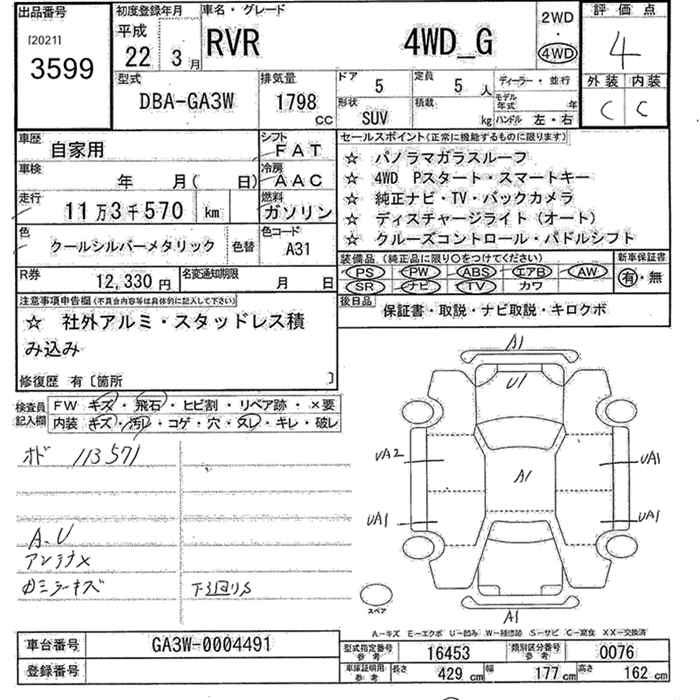 出品番号 初度登録年月 車名・グレード 2WD ・ 4WD 評価点
[2021] 3599 平成 22 3月 RVR 4WD_G 4
型式 排気量 ドア 5 定員 5人 ディーラー・並行 外装 内装
DBA-GA3W 1798cc 形状 SUV 積載 kg モデル年式 年 ハンドル 左・右 C C
車歴 自家用 シフト FAT セールスポイント(正常に機能するものに限ります)
車検 年 月( 日) 冷房 AAC
走行 11万3千570 km 燃料 ガソリン
☆ パノラマガラスルーフ
☆ 4WD Pスタート・スマートキー
☆ 純正ナビ・TV・バックカメラ
☆ ディスチャージライト(オート)
☆ クルーズコントロール・パドルシフト
色 クールシルバーメタリック 色替 色コード A31
装備品(純正品に限り○をつけてください) 新車保証書
PS ・ PW ・ ABS ・ エアB ・ AW 有・無
SR ・ ナビ ・ TV ・ カワ
R券 12,330円 名変通知期限 月 日
後日品 保証書・取説・ナビ取説・キロクボ
注意事項申告欄(不具合内容等は具体的に記入して下さい)
☆ 社外アルミ・スタッドレス積
み込み
修復歴 有〔箇所 〕
検査員記入欄 FW キズ・飛石・ヒビ割・リペア跡・×要
内装 キズ・汚レ・コゲ・穴・スレ・キレ・破レ
オド 113571
A.U
アンテナ×
下廻りサ
A1
U1
UA2
UA1
A1
UA1
UA1
A1
スペア
A-キズ E-エクボ U-凹み W-補修跡 S-サビ C-腐食 XX-交換済
車台番号 GA3W-0004491
登録番号
型式指定番号参考 16453 類別区分番号参考 0076
車庫証明用参考 長さ 429 cm 幅 177 cm 高さ 162 cm